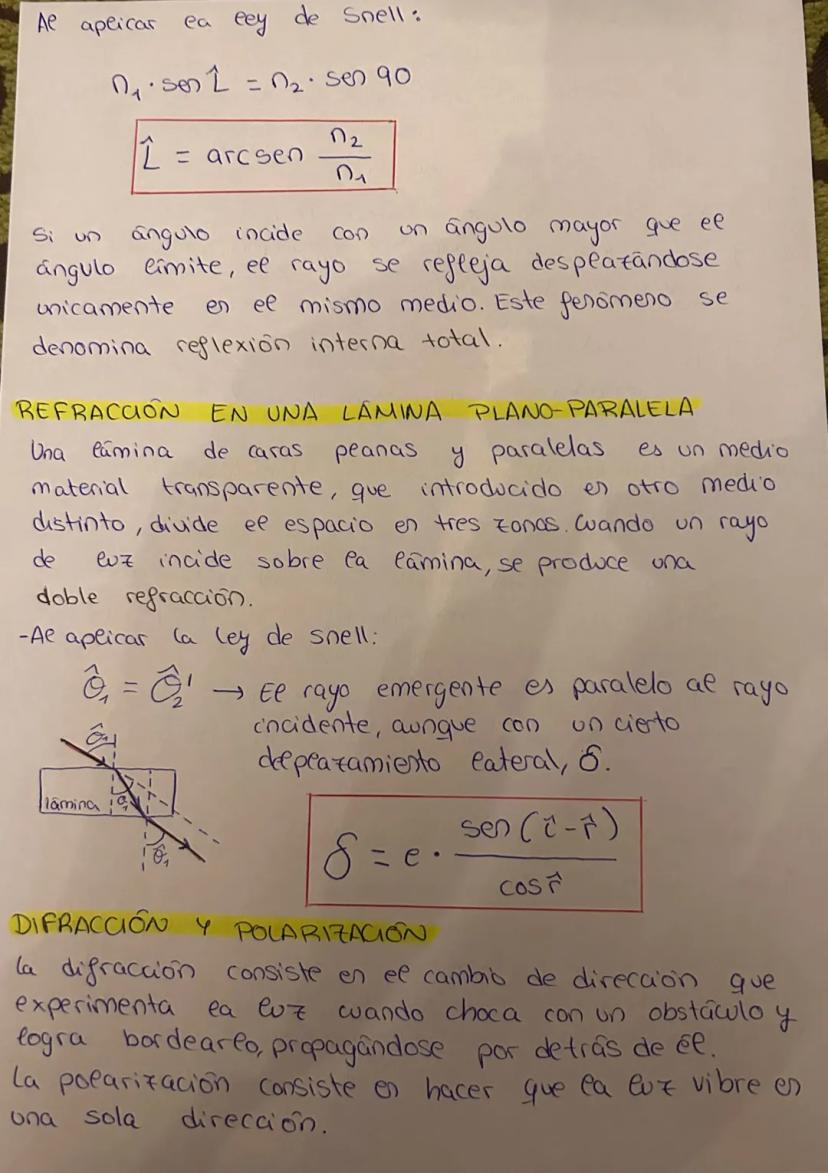 Al aplicar la ley de Snell:
n₁ · sen L̂ = n₂ · sen 90
L̂ = arcsen n₂/n₁
Si un ángulo incide con un ángulo mayor que el
ángulo límite, el rayo se refleja desplazándose
unicamente en el mismo medio. Este fenómeno se
denomina reflexión interna total.
REFRACCIÓN EN UNA LÁMINA PLANO-PARALELA
Una lámina de caras planas y paralelas es un medio
material transparente, que introducido en otro medio
distinto, divide el espacio en tres zonas. Cuando un rayo
de luz incide sobre la lámina, se produce una
doble refracción.
-Al aplicar la ley de snell:
θ̂₁ = θ̂₂' → El rayo emergente es paralelo al rayo
incidente, aunque con un cierto
deplazamiento lateral, δ.
lámina
θ̂₁
δ = e · sen(î-r̂)/cos r̂
DIFRACCIÓN Y POLARIZACIÓN
la difracción consiste en el cambio de dirección que
experimenta la luz cuando choca con un obstáculo y
logra bordearlo, propagándose por detrás de él.
La polarización consiste en hacer que la luz vibre en
una sola dirección.